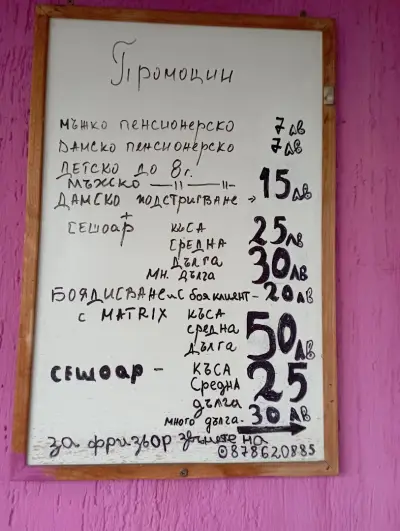 Промоции
мъжко пенсионерско 7 лв
Дамско пенсионерско 7 лв
Детско до 8 г.
мъжско —— 11 —— 11- 15 лв
Дамско подстригване →
сешоар + къса 25 лв
средна
дълга 30 лв
мн. дълга
Боядисване с боя клиент - 20 лв
с MATRIX къса
средна 50 лв
дълга
сешоар - къса 25
средна
дълга
много дълга - 30 лв
за фризьор звънете на
0878620885